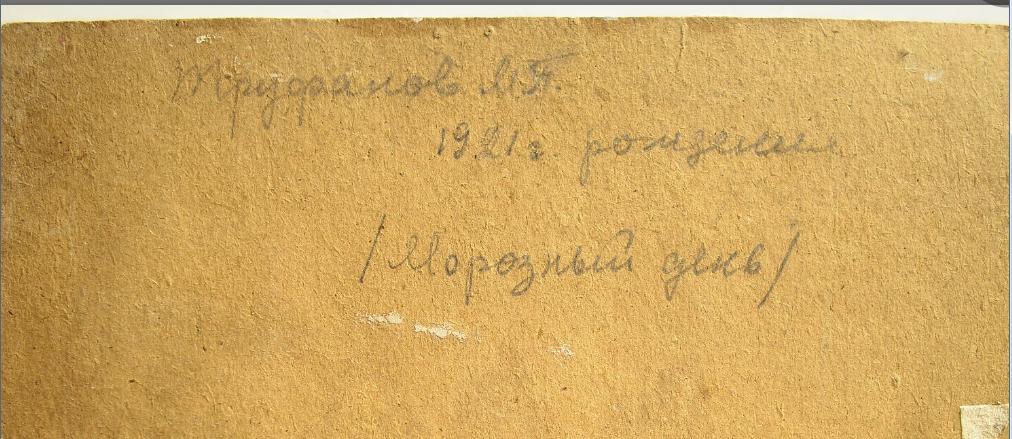 Труфанов М.П.
1921 г. рождения
/Морозный день/